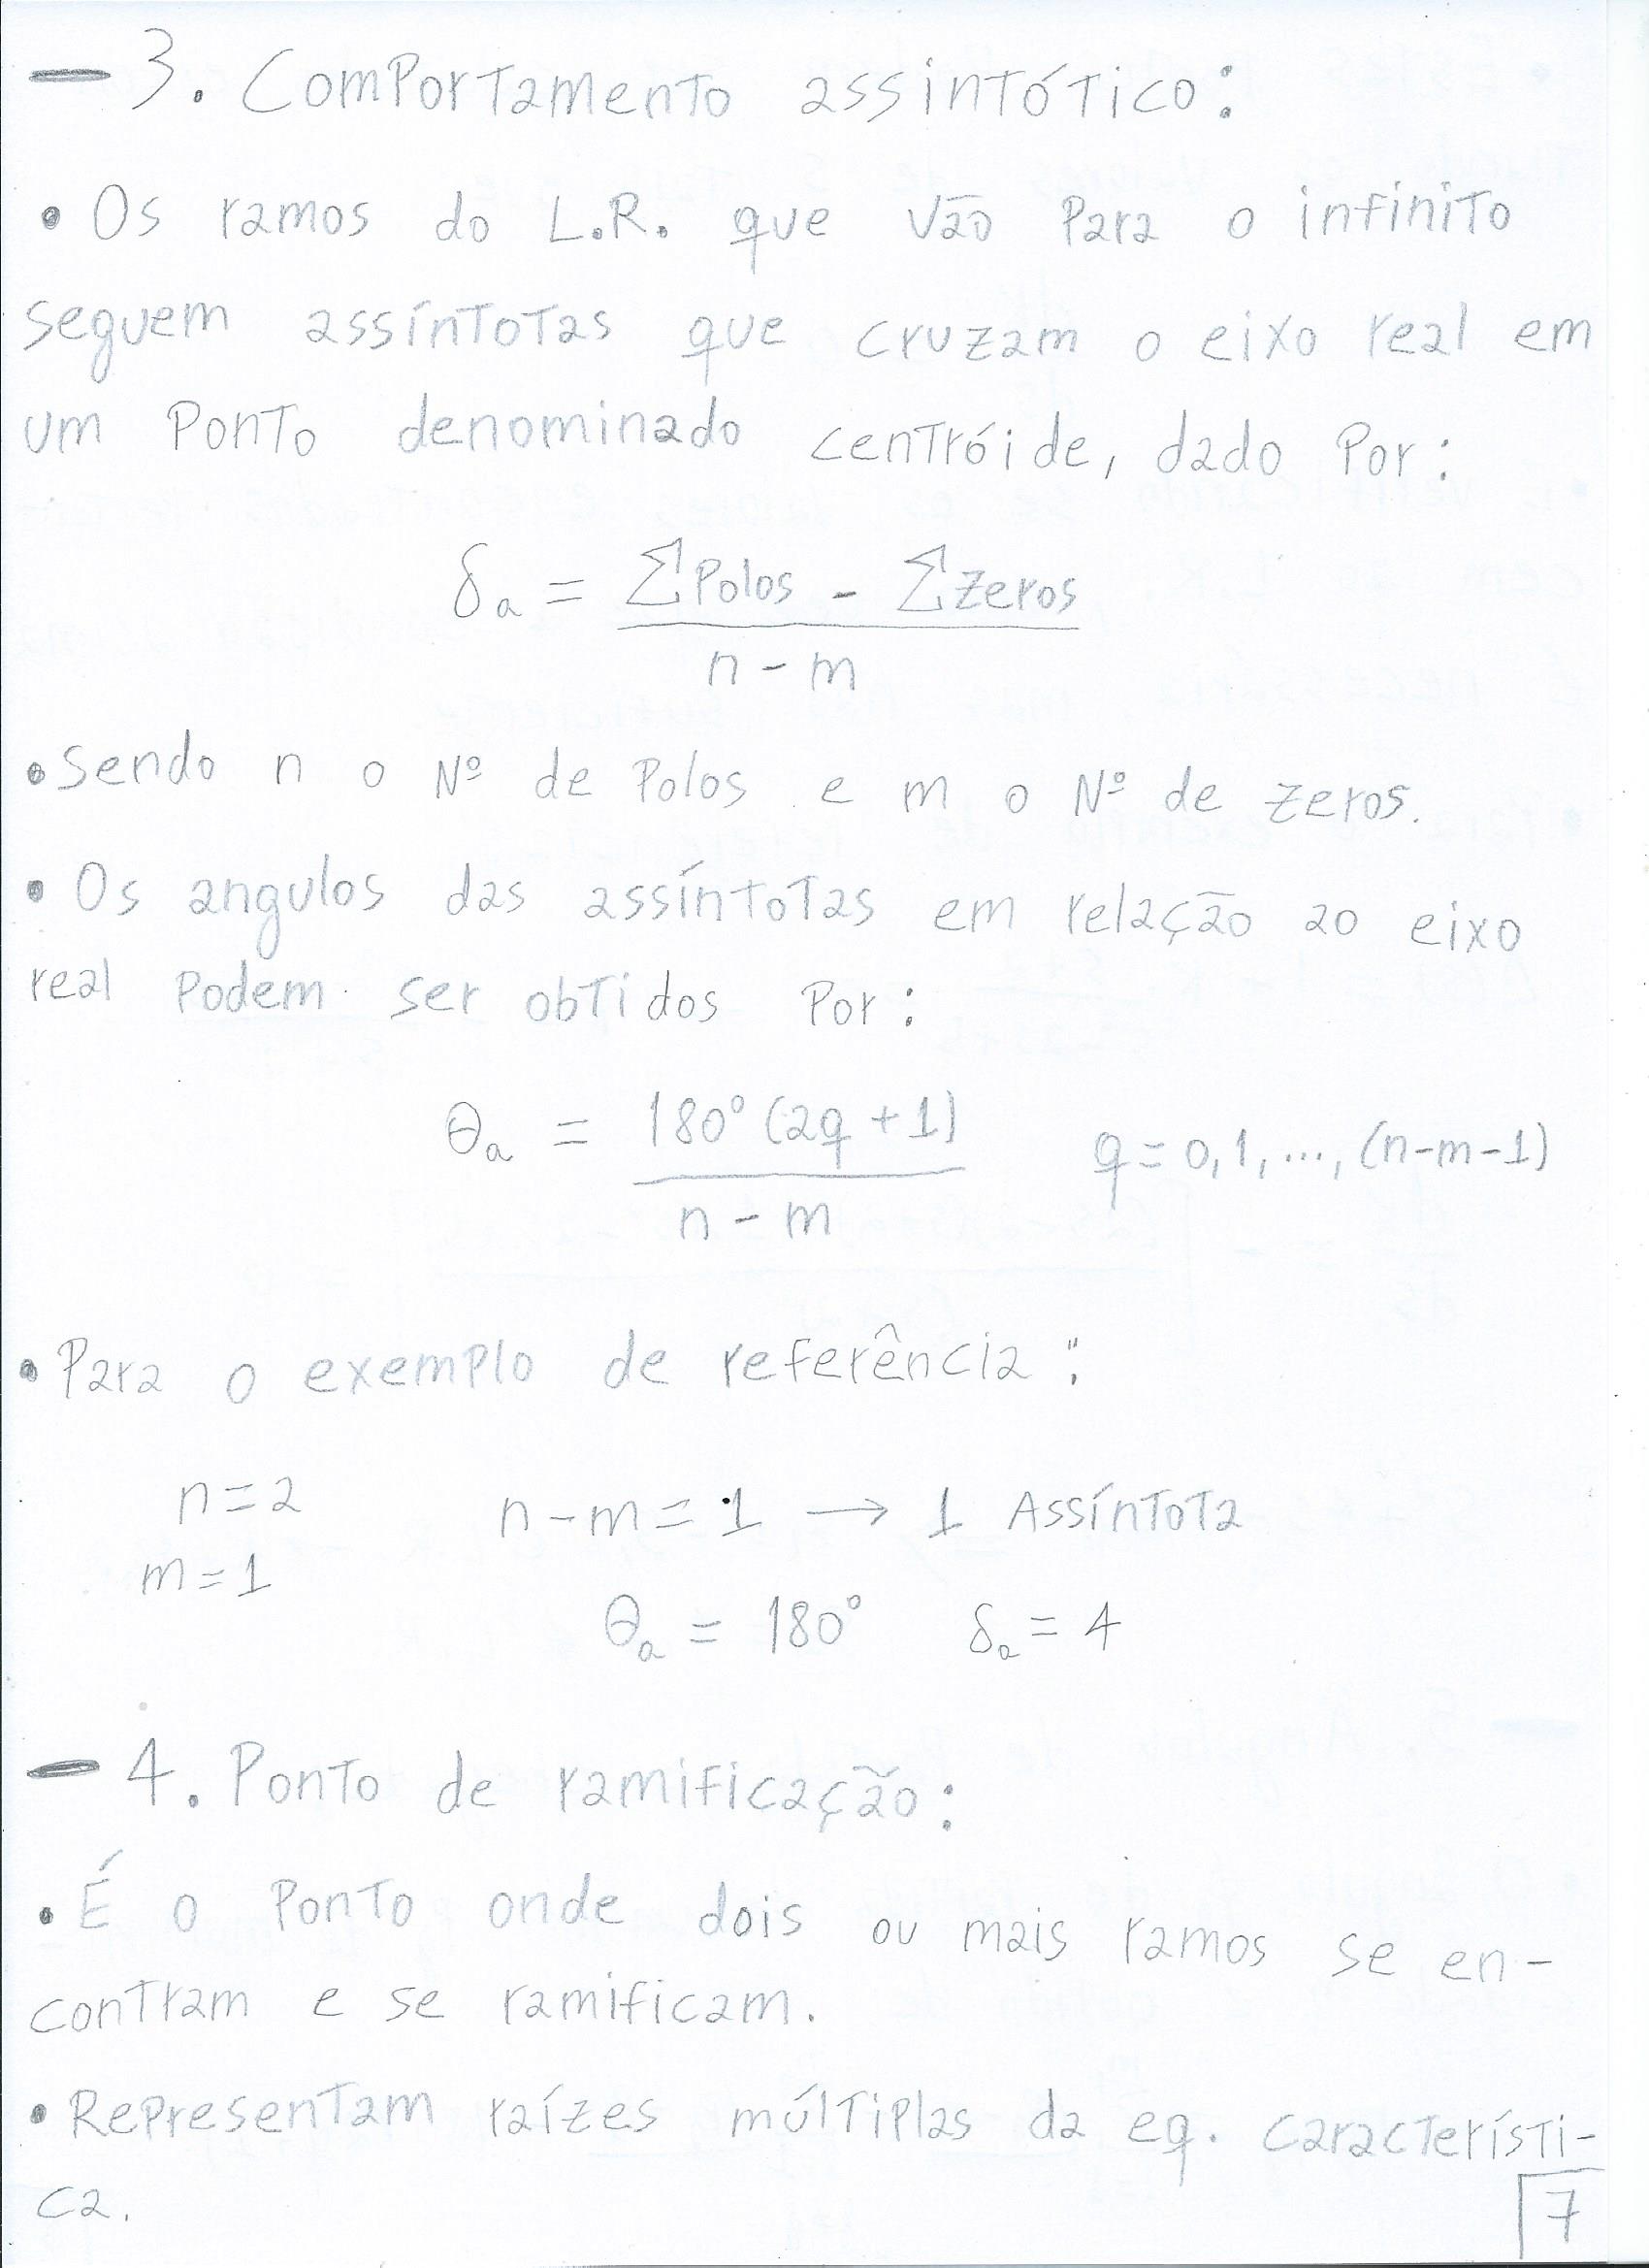 - 3. Comportamento assintótico:
• Os ramos do L.R. que vão para o infinito
seguem assíntotas que cruzam o eixo real em
um ponto denominado centróide, dado por:
δa = Σ Polos - Σ zeros
n - m
• sendo n o Nº de Polos e m o Nº de zeros.
• Os angulos das assíntotas em relação ao eixo
real podem ser obtidos por:
θa = 180° (2q + 1) q = 0, 1, ..., (n-m-1)
n - m
• Para o exemplo de referência:
n = 2 n - m = 1 → 1 Assíntota
m = 1
θa = 180° δa = 4
- 4. Ponto de ramificação:
• É o ponto onde dois ou mais ramos se en-
contram e se ramificam.
• Representam raízes múltiplas da eq. característi-
ca.
7